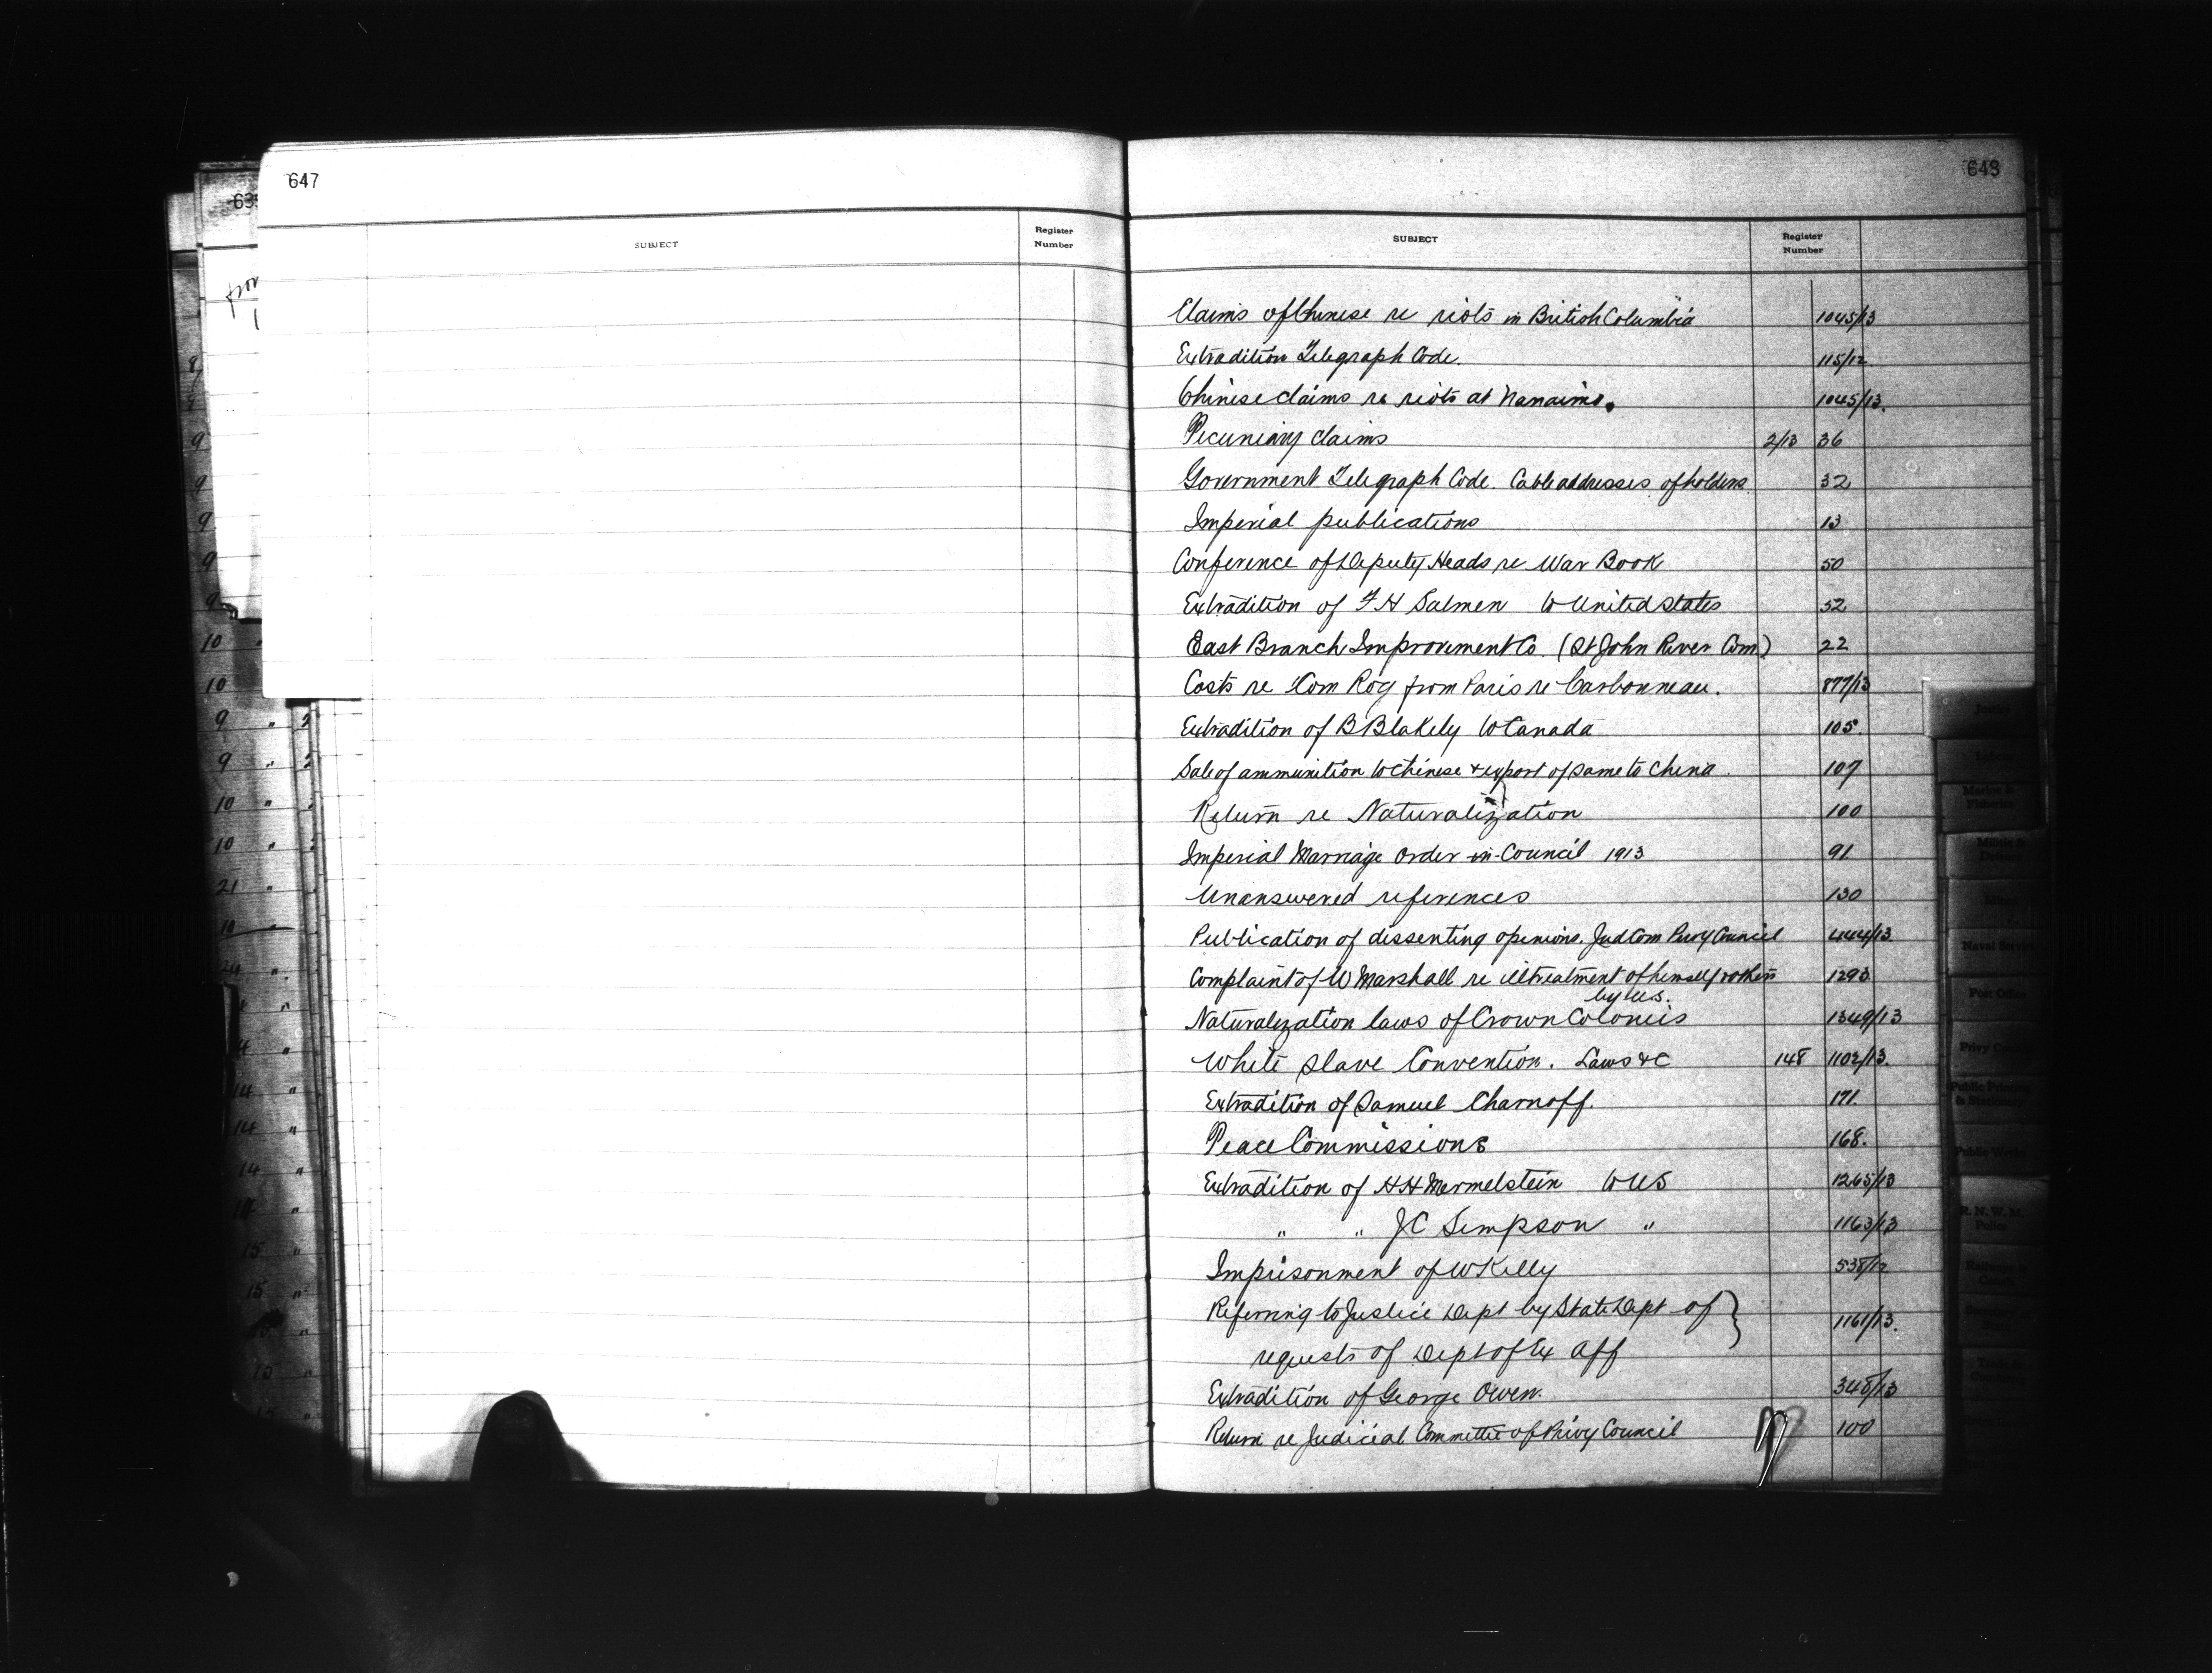 647
SUBJECT
Register
Number
643
SUBJECT
Register
Number
Claims of Chinese re riots in British Columbia 1045/13
Extradition Telegraph Code. 115/12
Chinese claims re riots at Nanaimo. 1045/13.
Pecuniary claims 2/13 36
Government Telegraph Code. Cable addresses of holders 32
Imperial publications 13
Conference of Deputy Heads re War Book 50
Extradition of F H Salmen to United States 52
East Branch Improvement Co. (St John River Com.) 22
Costs re Com Rog from Paris re Carbonneau. 877/13
Extradition of B Blakely to Canada 105.
Sale of ammunition to Chinese & export of same to China. 107
Return re Naturalization 100
Imperial Marriage Order-in-Council 1913 91
Unanswered references 130
Publication of dissenting opinions. Jud Com Privy Council 444/13.
Complaint of W Marshall re illtreatment of himself & others 1293
by U.S.
Naturalization laws of Crown Colonies 1349/13
White Slave Convention. Laws &c 148 1102/13.
Extradition of Samuel Charnoff. 171.
Peace Commissions 168.
Extradition of H H Mermelstein to US 1265/13
" " J C Simpson " 1163/13
Imprisonment of W Kelly 538/12
Referring to Justice Dept by State Dept of } 1161/13.
requests of Dept of Ex Aff
Extradition of George Owen. 348/13
Return re Judicial Committee of Privy Council 100
Justice
Labour
Marine &
Fisheries
Militia &
Defence
Mines
Naval Service
Post Office
Privy Council
Public Printing
& Stationery
Public Works
R. N. W. M.
Police
Railways &